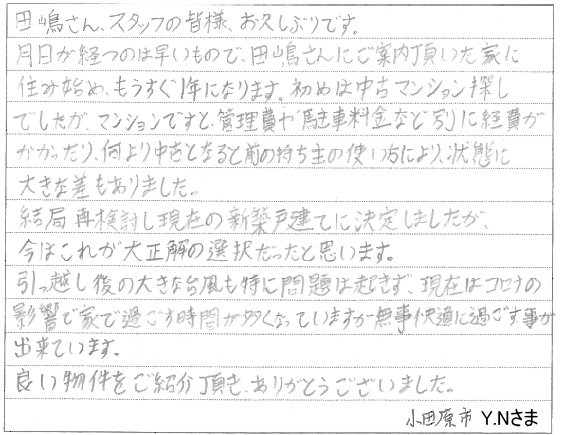 田嶋さん、スタッフの皆様、お久しぶりです。
月日が経つのは早いもので、田嶋さんにご案内頂いた家に
住み始め、もうすぐ1年になります。初めは中古マンション探し
でしたが、マンションですと、管理費や駐車料金など別に経費が
かかったり、何より中古となると前の持ち主の使い方により、状態に
大きな差もありました。
結局再検討し現在の新築戸建てに決定しましたが、
今はこれが大正解の選択だったと思います。
引っ越し後の大きな台風も特に問題は起きず、現在はコロナの
影響で家で過ごす時間が多くなっていますが無事快適に過ごす事が
出来ています。
良い物件をご紹介頂き、ありがとうございました。
小田原市 Y.Nさま